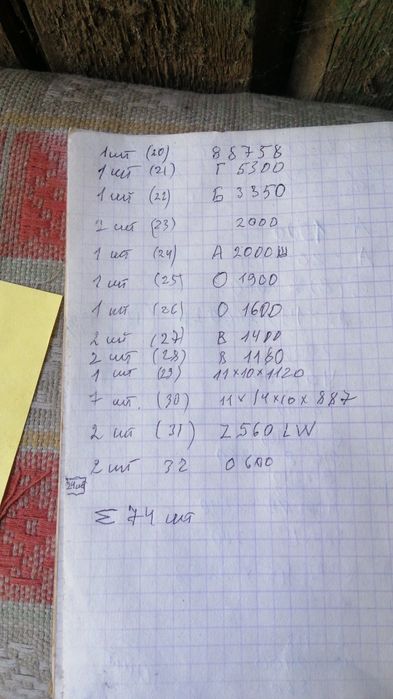 1 шт (20) 88758
1 шт (21) Г 5300
1 шт (22) Б 3350
2 шт (23) 2000
1 шт (24) А 2000ш
1 шт (25) О 1900
1 шт (26) О 1600
2 шт (27) В 1400
2 шт (28) В 1180
1 шт (29) 11×10×1120
7 шт. (30) 11×14×10×887
2 шт (31) Z 560 LW
2 шт 32 О 600
Σ 74 шт